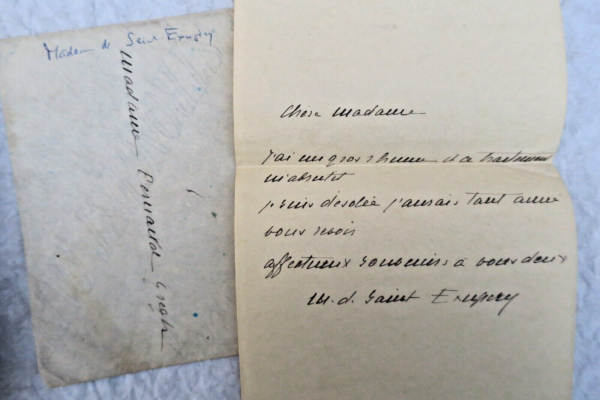 Madame de Saint Exupéry
Madame Fernande Gregh
Chère Madame
J'ai un gros rhume et ce traitement
m'abrutit
je suis désolée j'aurais tant aimé
vous revoir
affectueux souvenirs à vous deux
M. d. Saint Exupéry